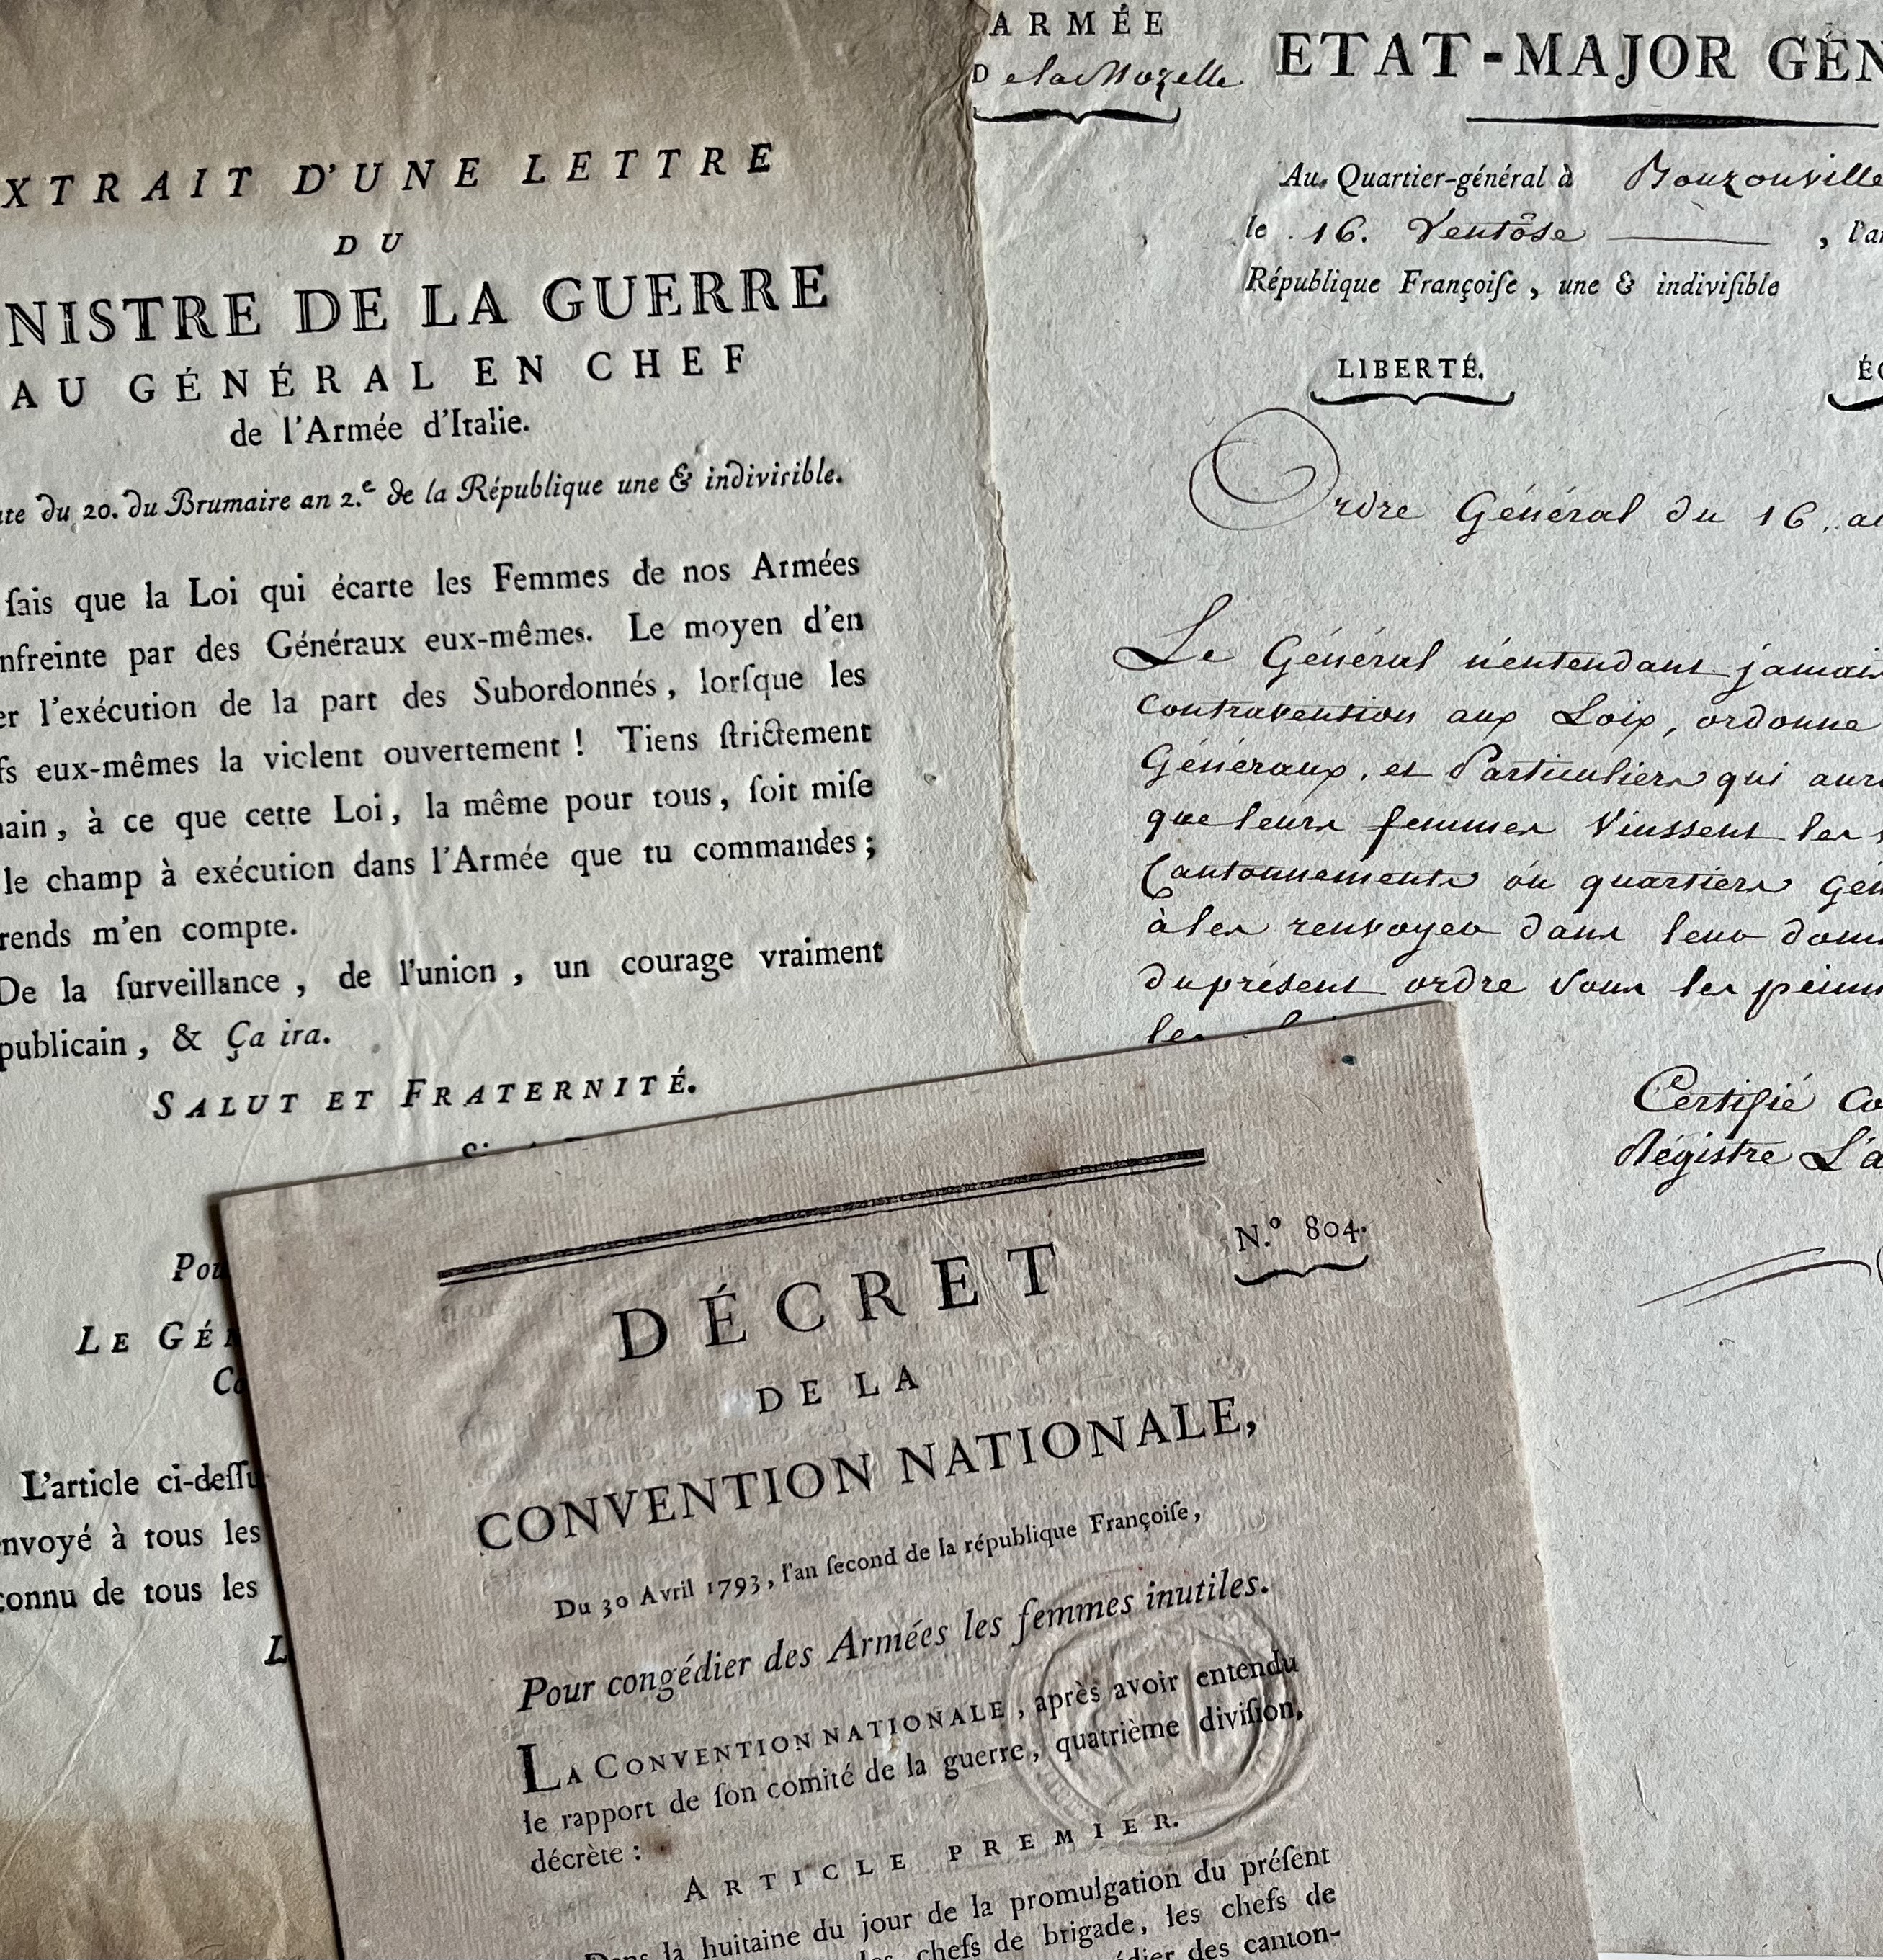 XTRAIT D'UNE LETTRE
DU
NISTRE DE LA GUERRE
AU GÉNÉRAL EN CHEF
de l'Armée d'Italie.
te du 20. du Brumaire an 2.e de la République une & indivisible.
ſais que la Loi qui écarte les Femmes de nos Armées
nfreinte par des Généraux eux-mêmes. Le moyen d'en
er l'exécution de la part des Subordonnés, lorſque les
fs eux-mêmes la violent ouvertement ! Tiens ſtrictement
main, à ce que cette Loi, la même pour tous, ſoit miſe
le champ à exécution dans l'Armée que tu commandes ;
rends m'en compte.
De la ſurveillance, de l'union, un courage vraiment
publicain, & Ça ira.
SALUT ET FRATERNITÉ.
Pou
LE GÉN
Co
L'article ci-deſſu
nvoyé à tous les
connu de tous les
L
ARMÉE
De la Mozelle
ETAT-MAJOR GÉN
Au Quartier-général à Bouzonville
le 16. Ventôse , l'an
République Françoiſe, une & indiviſible
LIBERTÉ.
ÉG
Ordre Général du 16. au
Le Général n'entendant jamais
contravention aux Loix, ordonne
Généraux, et Particuliers qui aur
que leurs femmes Vinssent les
Cantonnements ou quartiers Gén
à les renvoyer dans leur dom
du présent ordre sous les peines
les
Certifié co
Régistre L'a
N.o 804.
DÉCRET
DE LA
CONVENTION NATIONALE,
Du 30 Avril 1793, l'an ſecond de la république Françoiſe,
Pour congédier des Armées les femmes inutiles.
LA CONVENTION NATIONALE, après avoir entendu
le rapport de ſon comité de la guerre, quatrième diviſion,
décrète :
ARTICLE PREMIER.
Dans la huitaine du jour de la promulgation du préſent
les chefs de brigade, les chefs de
édier des canton-